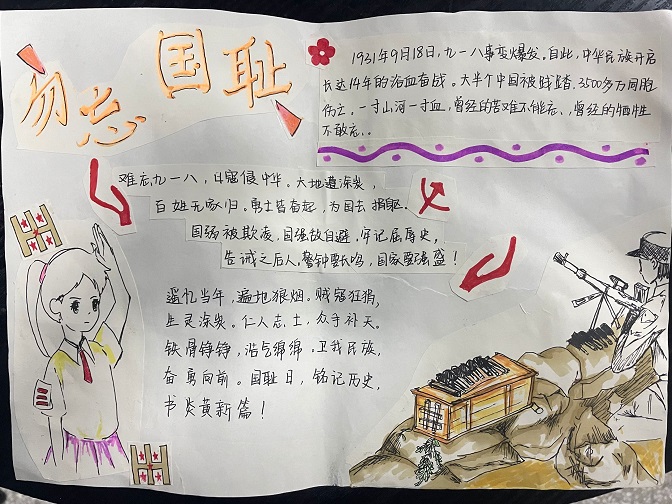 勿忘国耻
1931年9月18日,九一八事变爆发。自此,中华民族开启
长达14年的浴血奋战。大半个中国被践踏,3500多万同胞
伤亡。一寸山河一寸血,曾经的苦难不能忘、,曾经的牺牲
不敢忘、。
难忘九一八,日寇侵中华。大地遭涂炭,
百姓无家归。勇士皆奋起,为国去捐躯。
国弱被欺凌,国强敌自避。牢记屈辱史,
告诫之后人,警钟要长鸣,国家要强盛!
遥忆当年,遍地狼烟。贼寇狂猖,
生灵涂炭。仁人志士,众手补天。
铁骨铮铮,浩气绵绵,卫我民族,
奋勇向前。国耻日,铭记历史,
书炎黄新篇!